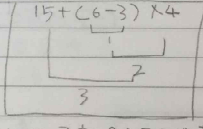 15+(6-3)×4
1
2
3